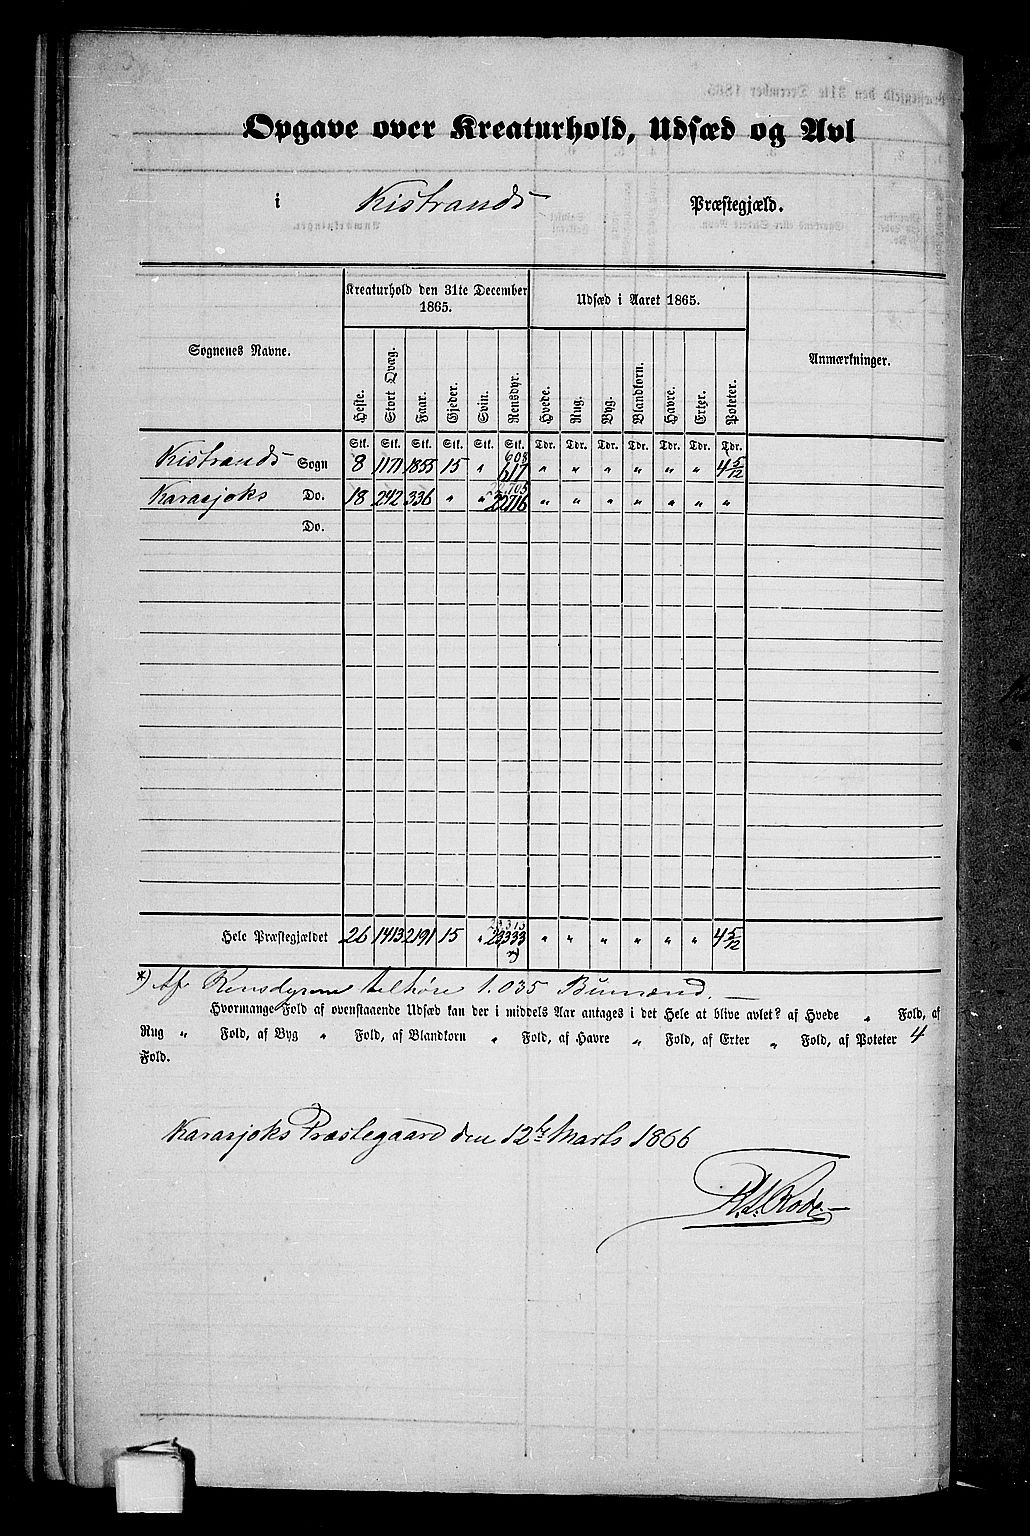 Opgave over Kreaturhold, Udsæd og Avl
i Kistrands Præstegjæld.
Sognenes Navne. Kreaturhold den 31te December 1865. Udsæd i Aaret 1865. Anmærkninger.
Heste. Stort Qvæg. Faar. Gjeder. Svin. Rensdyr. Hvede. Rug. Byg. Blandkorn. Havre. Erter. Poteter.
Stk. Stk. Stk. Stk. Stk. Stk. Tdr. Tdr. Tdr. Tdr. Tdr. Tdr. Tdr.
608
Kistrands Sogn 8 1171 1855 15 " 617 " " " " " " 4 5/12
705
Karasjoks Do. 18 242 336 " " 22716 " " " " " " "
Do.
Hele Præstegjældet 26 1413 2191 15 " 23333 " " " " " " 4 5/12
*)
*) Af Rensdyrene tilhøre 1.035 Bumænd.
Hvormange Fold af ovenstaaende Udsæd kan der i middels Aar antages i det Hele at blive avlet? af Hvede " Fold, af
Rug " Fold, af Byg " Fold, af Blandkorn " Fold, af Havre " Fold, af Erter " Fold, af Poteter 4
Fold.
Karasjoks Præstegaard den 12te Marts 1866
Rode